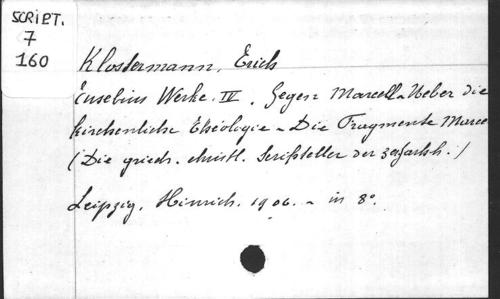 SCRIPT.
7
160
Klostermann, Erich
Eusebius Werke. IV. Gegen Marcell - Ueber die
kirchenliche Theologie - Die Fragmente Marce
(Die griech. christl. Schriftsteller der 3
Leipzig, Hinrich. 1906. - in 8°.